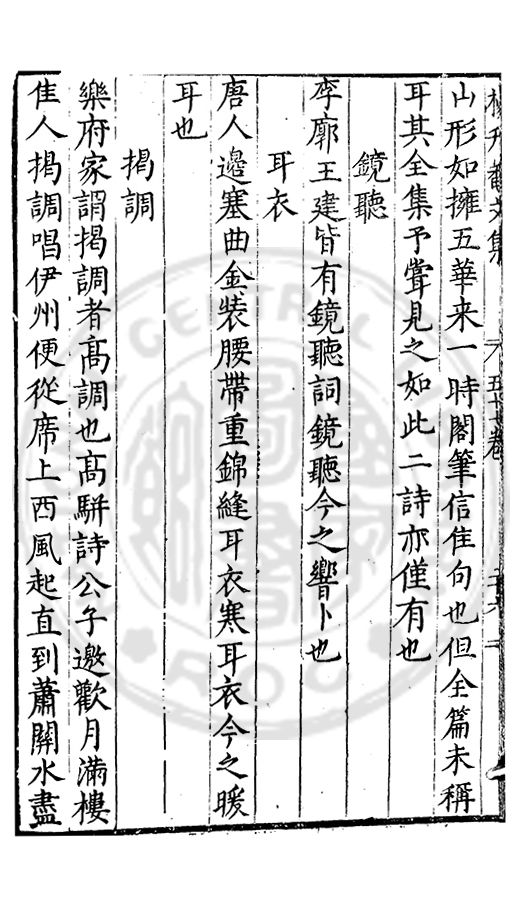 山形如擁五華来一時閣筆信佳句也但全篇未稱
耳其全集予嘗見之如此二詩亦僅有也
鏡聽
李廓王建皆有鏡聽詞鏡聽今之響卜也
耳衣
唐人邊塞曲金裝腰帶重錦縫耳衣寒耳衣今之暖
耳也
揭調
樂府家謂揭調者髙調也髙駢詩公子邀歡月滿樓
佳人揭調唱伊州便從席上西風起直到蕭關水盡
CENTRAL
ROC